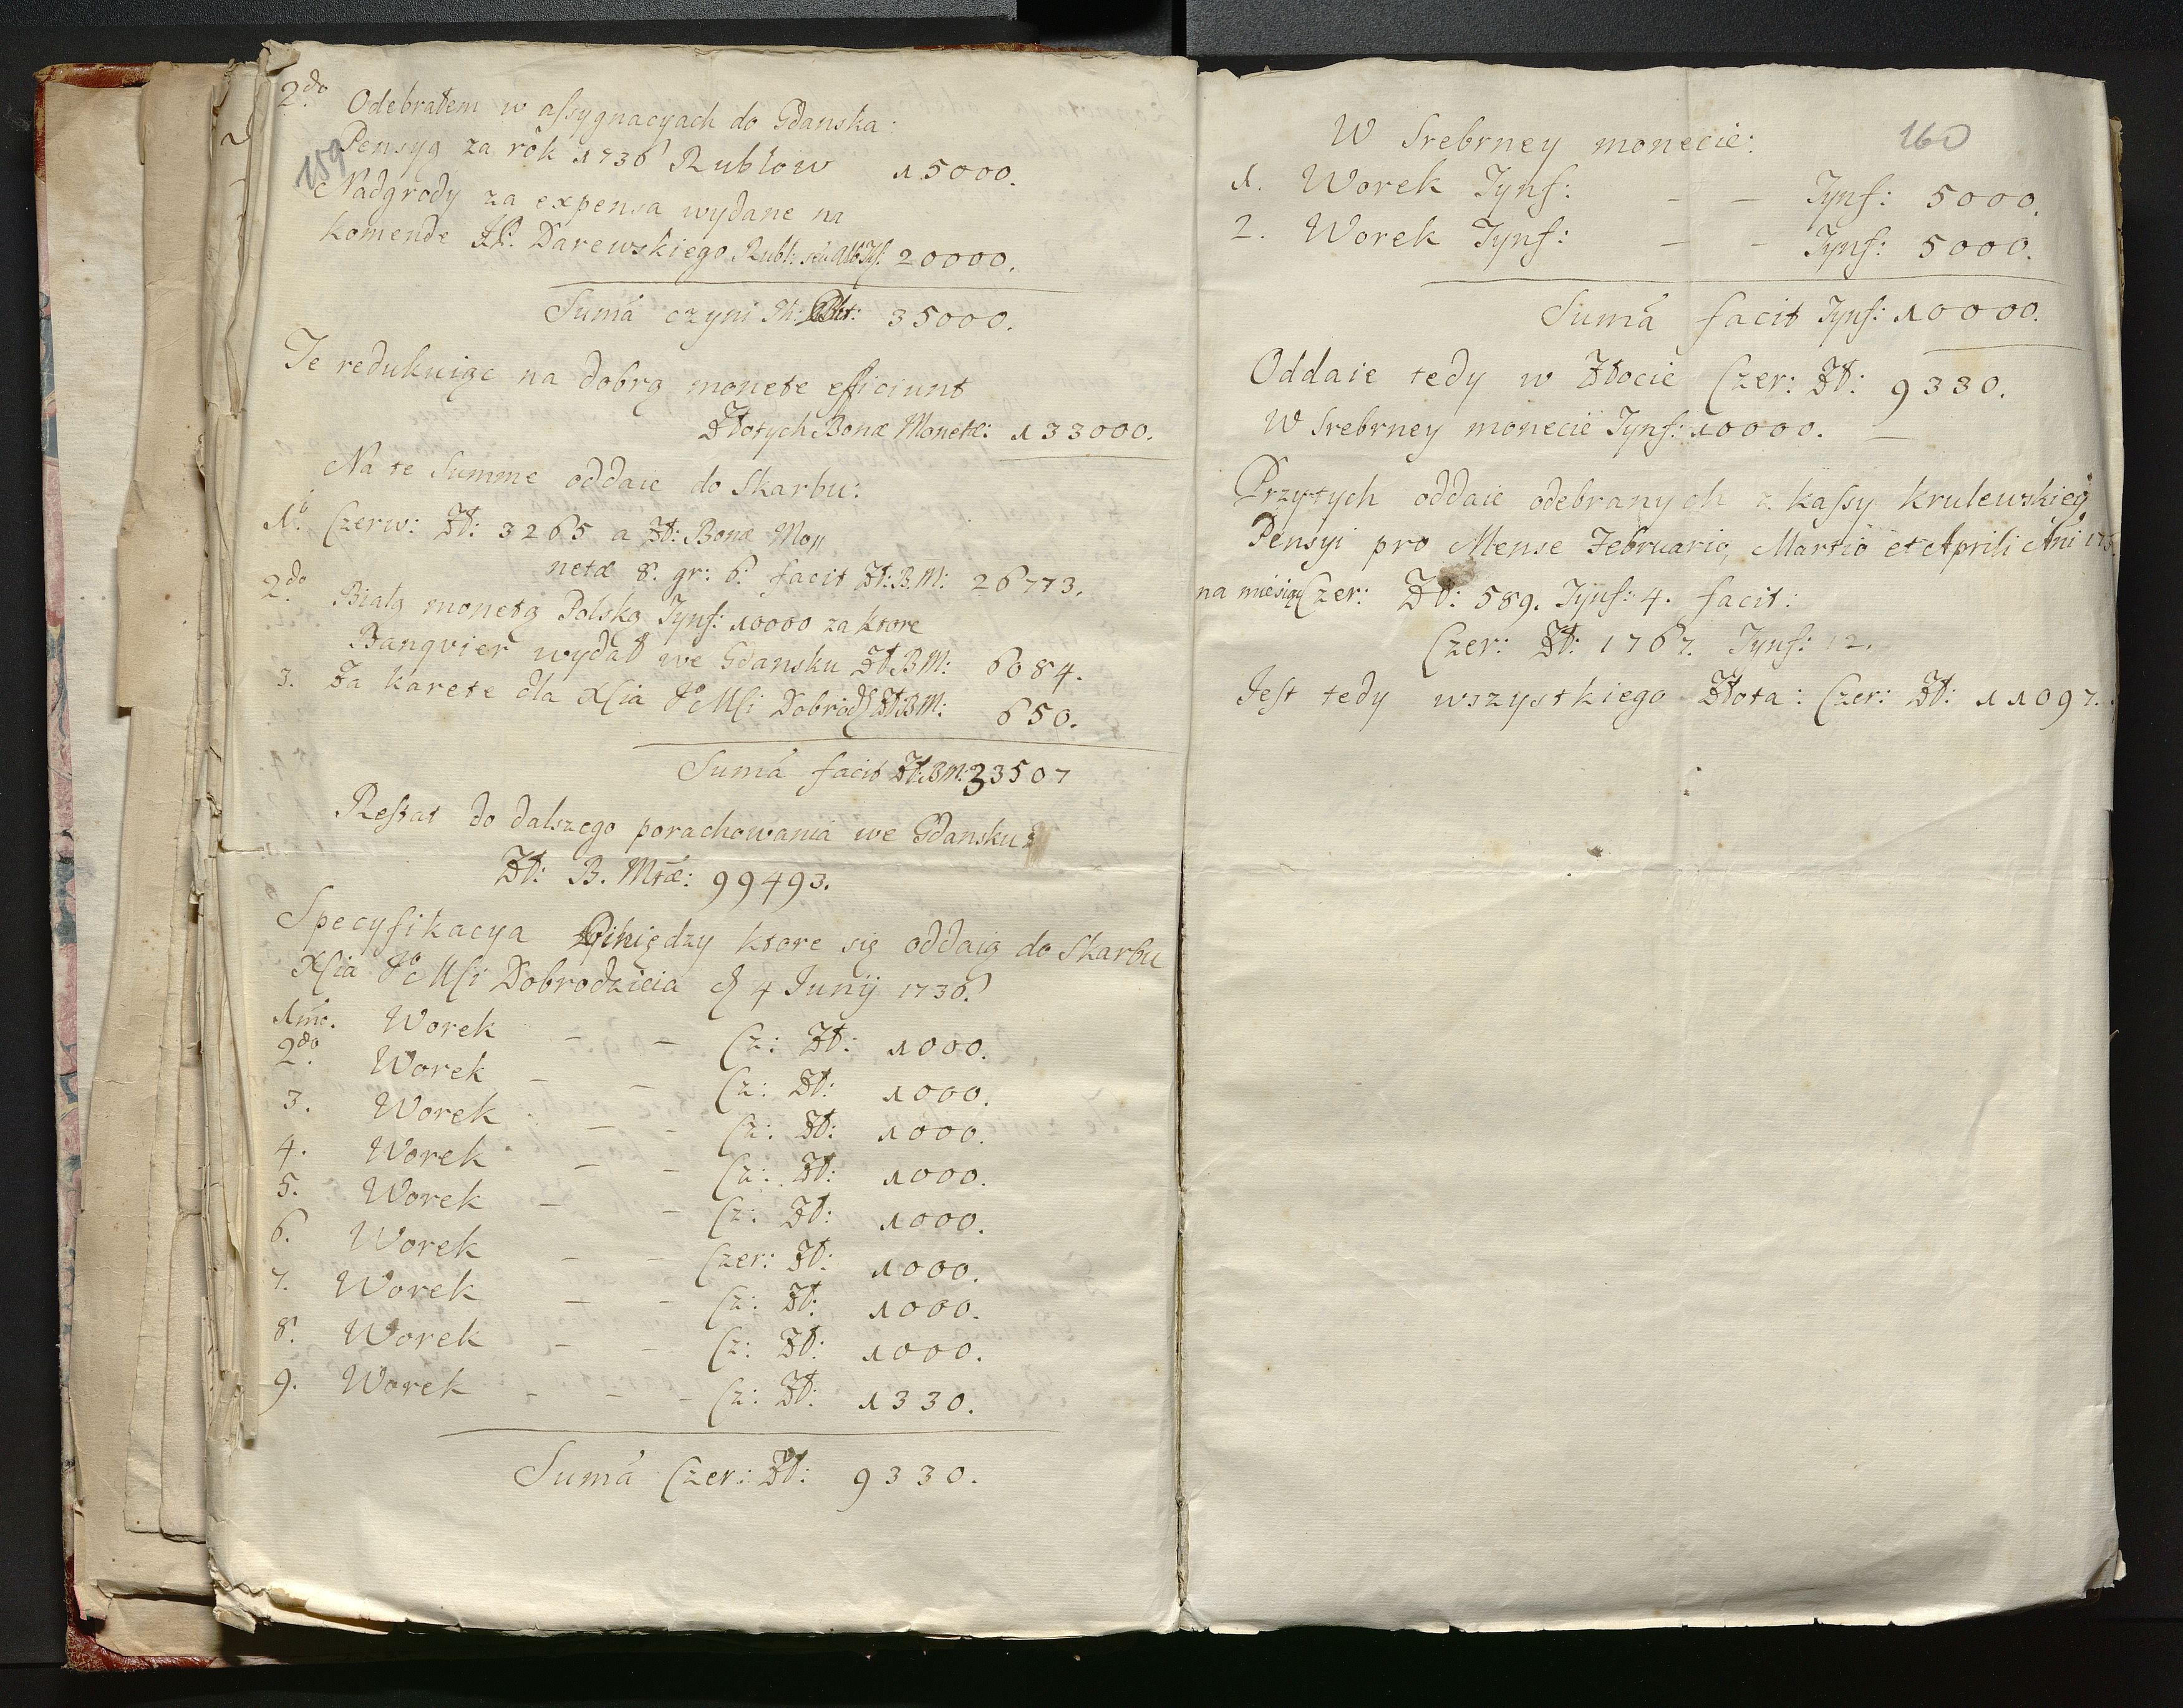 2do Odebrałem w assygnacyach do Gdanska:
159
Pensyą za rok 1736 Rublow 15000.
Nadgrody za expensa wydane na
komende JP. Darewskiego Rubl: 20000.
Suma czyni 35000.
Te redukuiąc na dobrą monete efficiunt
Złotych Bonæ Monetæ: 133000.
Na te Summe oddaie do Skarbu:
1o. Czerw: Zł: 3265 a Zł: Bonæ Mo
netæ 8. gr: 6. facit Zł: B. M: 26773.
2do. Białą monetą Polską Tynf: 10000 za ktore
Banqvier wydał we Gdansku Zł BM: 6084.
3. Za karete dla Xcia Jo Mci Dobrodz Zł: BM: 650.
Suma facit Zł: B M: 33507
Restat do dalszego porachowania we Gdansku:
Zł: B. Mtæ: 99493.
Specyfikacya Piniędzy ktore się oddaią do Skarbu
Xcia Jo Mci Dobrodzieia d 4 Junij 1736.
1mo. Worek - - Cz: Zł: 1000.
2do. Worek - - Cz: Zł: 1000.
3. Worek - - Cz: Zł: 1000.
4. Worek - - Cz: Zł: 1000.
5. Worek - - Cz: Zł: 1000.
6. Worek - - Czer: Zł: 1000.
7. Worek - - Cz: Zł: 1000.
8. Worek - - Cz: Zł: 1000.
9. Worek - - - Cz: Zł: 1330.
Suma Czer: Zł: 9330.
160
W Srebrney monecie:
1. Worek Tynf: - - Tynf: 5000.
2. Worek Tynf: - - Tynf: 5000.
Suma facit Tynf: 10000.
Oddaie tedy w Złocie Czer: Zł: 9330.
W Srebrney monecie Tynf: 10000.
Przytych oddaie odebranych z kassy krulewskiey
Pensyi pro Mense Februario, Martio et Aprili Ani
na miesiąc Czer: Zł: 589. Tynf: 4. facit:
Czer: Zł: 1767. Tynf: 12.
Jest tedy wszystkiego Złota: Czer: Zł: 11097.